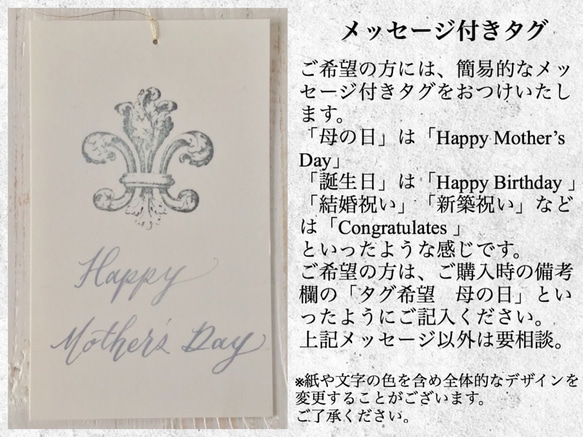 Happy
Mother's Day
メッセージ付きタグ
ご希望の方には、簡易的なメッ
セージ付きタグをおつけいたし
ます。
「母の日」は「Happy Mother’s
Day」
「誕生日」は「Happy Birthday 」
「結婚祝い」「新築祝い」など
は「Congratulates 」
といったような感じです。
ご希望の方は、ご購入時の備考
欄の「タグ希望　母の日」とい
ったようにご記入ください。
上記メッセージ以外は要相談。
※紙や文字の色を含め全体的なデザインを
変更することがございます。
ご了承ください。